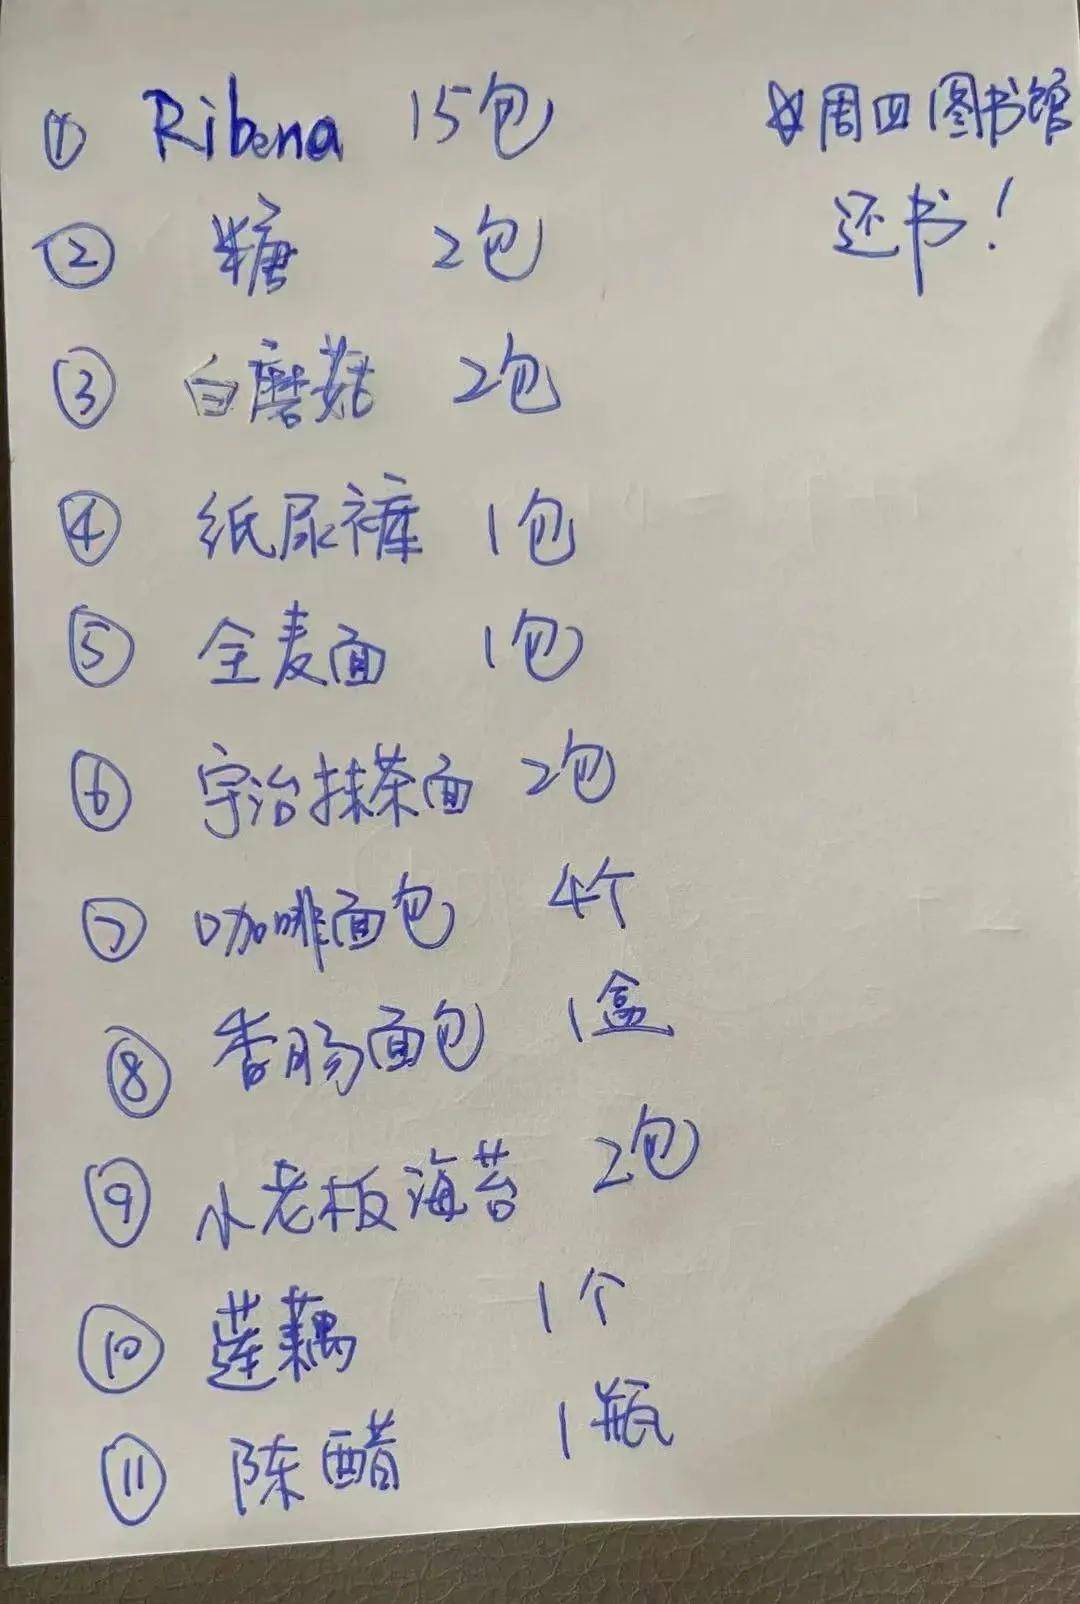 ① Ribena 15包
② 糖 2包
③ 白磨菇 2包
④ 纸尿裤 1包
⑤ 全麦面 1包
⑥ 宇治抹茶面 2包
⑦ 咖啡面包 4个
⑧ 香肠面包 1盒
⑨ 小老板海苔 2包
⑩ 莲藕 1个
⑪ 陈醋 1瓶
☆周四图书馆
还书！